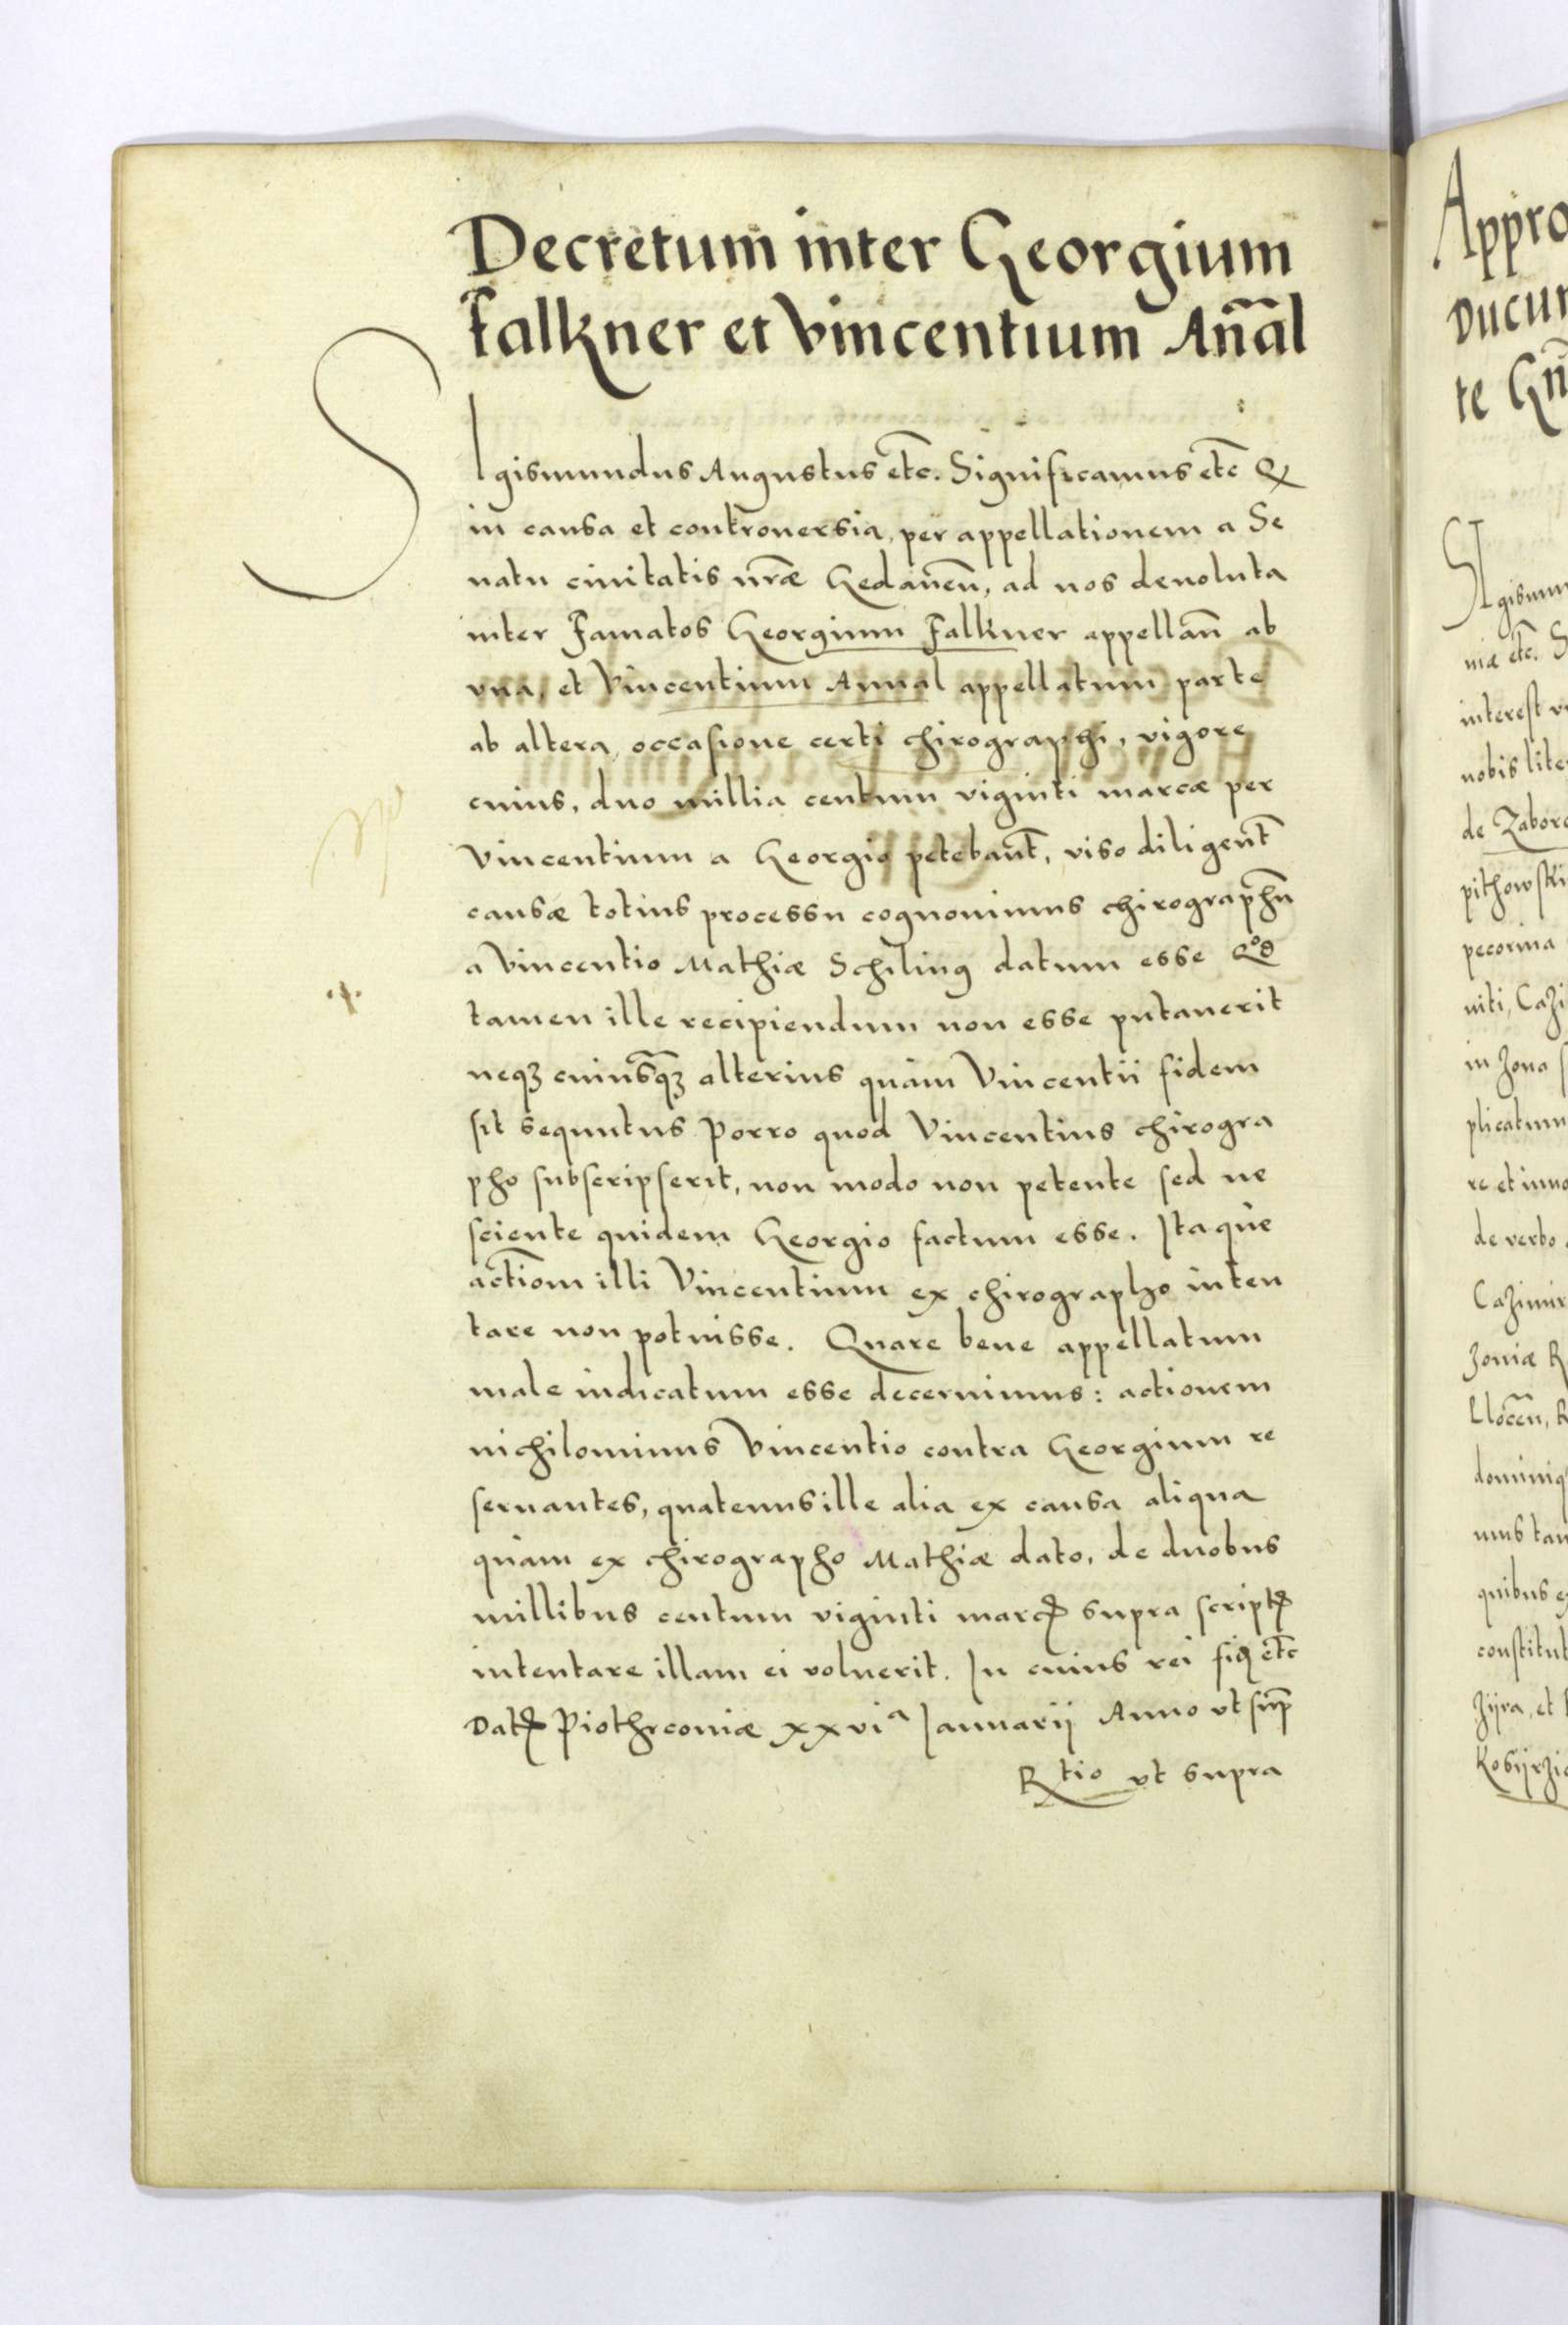 Decretum inter Georgium
Falkner et Vincentium An̄al
SIgismundus Augustus etc̄. Significamus etc̄ Q
in causa et controuersia, per appellationem a Se
natu ciuitatis nr̄æ Gedanen̄, ad nos deuoluta
inter Famatos Georgium Falkner appellan̄ ab
vna, et Vincentium Annal appellatum parte
ab altera, occasione certi chirographi, vigore
cuius, duo millia centum viginti marcæ per
Vincentium a Georgio petebant̄, viso diligent̄
causæ totius processu cognouimus chirographū
a Vincentio Mathiæ Schiling datum esse Qd
tamen ille recipiendum non esse putauerit
neqꝫ cuiusqꝫ alterius quàm Vincentii fidem
sit sequutus Porro quod Vincentius chirogra
pho subscripserit, non modo non petente sed ne
sciente quidem Georgio factum esse. Itaque
actio̅m illi Vincentium ex chirographo inten
tare non potuisse. Quare bene appellatum
male iudicatum esse decernimus: actionem
nichilominus Vincentio contra Georgium re
seruantes, quatenus ille alia ex causa aliqua
quàm ex chirographo Mathiæ dato, de duobus
millibus centum viginti marcꝭ supra scriptꝭ
intentare illam ei voluerit. In cuius rei fiđ etc̄
Datꝭ Piothrconiæ xxviᵃ Ianuarij Anno vt sup̄
Rtio vt supra
Appro
Ducur
te Gn̄
SIgismun
niæ etc̄. S
interest v
nobis lite
de Zaboro
pithowski
pecorina
niti, Cazi
in zona
plicatum
re et inno
de verbo
Cazimir
zoniæ R
Llocen̄, R
dominiq
mus tan
quibus e
constitut
Zijra, et
Kosijrzic